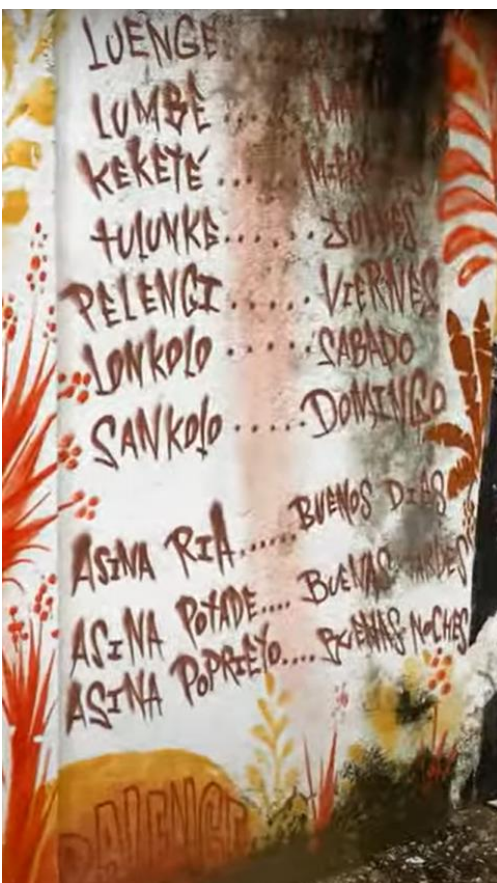 LUENGE
LUMBE ....
KEKETÉ ....
TULUNKE...... JUEVES
PELENGI...... VIERNES
LONKOLO ...... SABADO
SANKOLO ..... DOMINGO
ASINA RIA...... BUENOS DIAS
ASINA POTADE.... BUENAS TARDES
ASINA POPRIETO.... BUENAS NOCHES
PALENGE